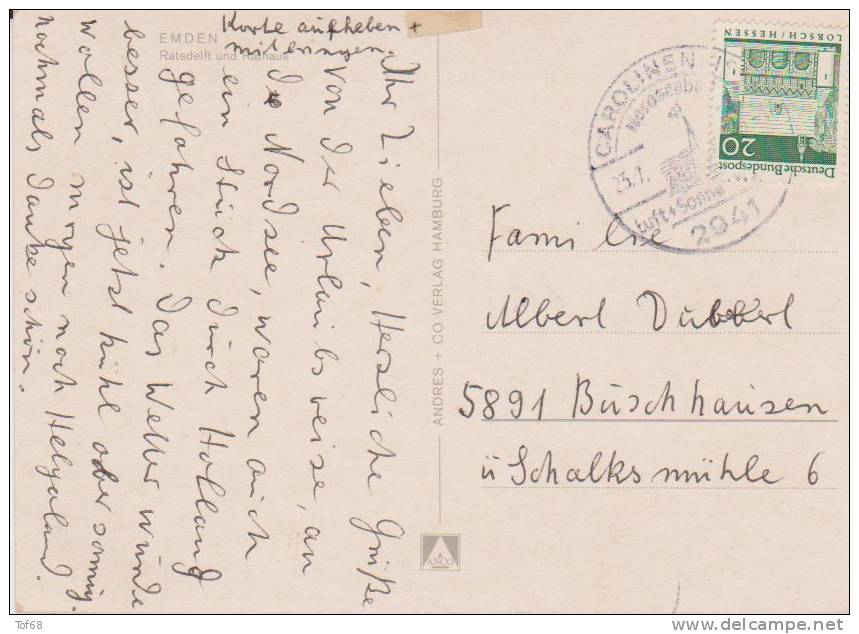 EMDEN
Ratsdelft und Rathaus
Karte aufheben +
mitbringen.
Ihr Lieben, Herzliche Grüße
von der Urlaubsreise, an
die Nordsee, waren auch
ein Stück durch Holland
gefahren. Das Wetter wurde
besser, ist jetzt kühl aber sonnig.
wollen morgen noch Helgoland.
nochmals Danke schön.
ANDRES + CO VERLAG HAMBURG
ANCO
LORSCH/HESSEN
20
Deutsche Bundespost
CAROLINEN
Nordseebad
23.7.
Luft+Sonne
2941
Familie
Albert
5891 Buschhausen
ü Schalksmühle 6
Tof68
www.delcampe.net